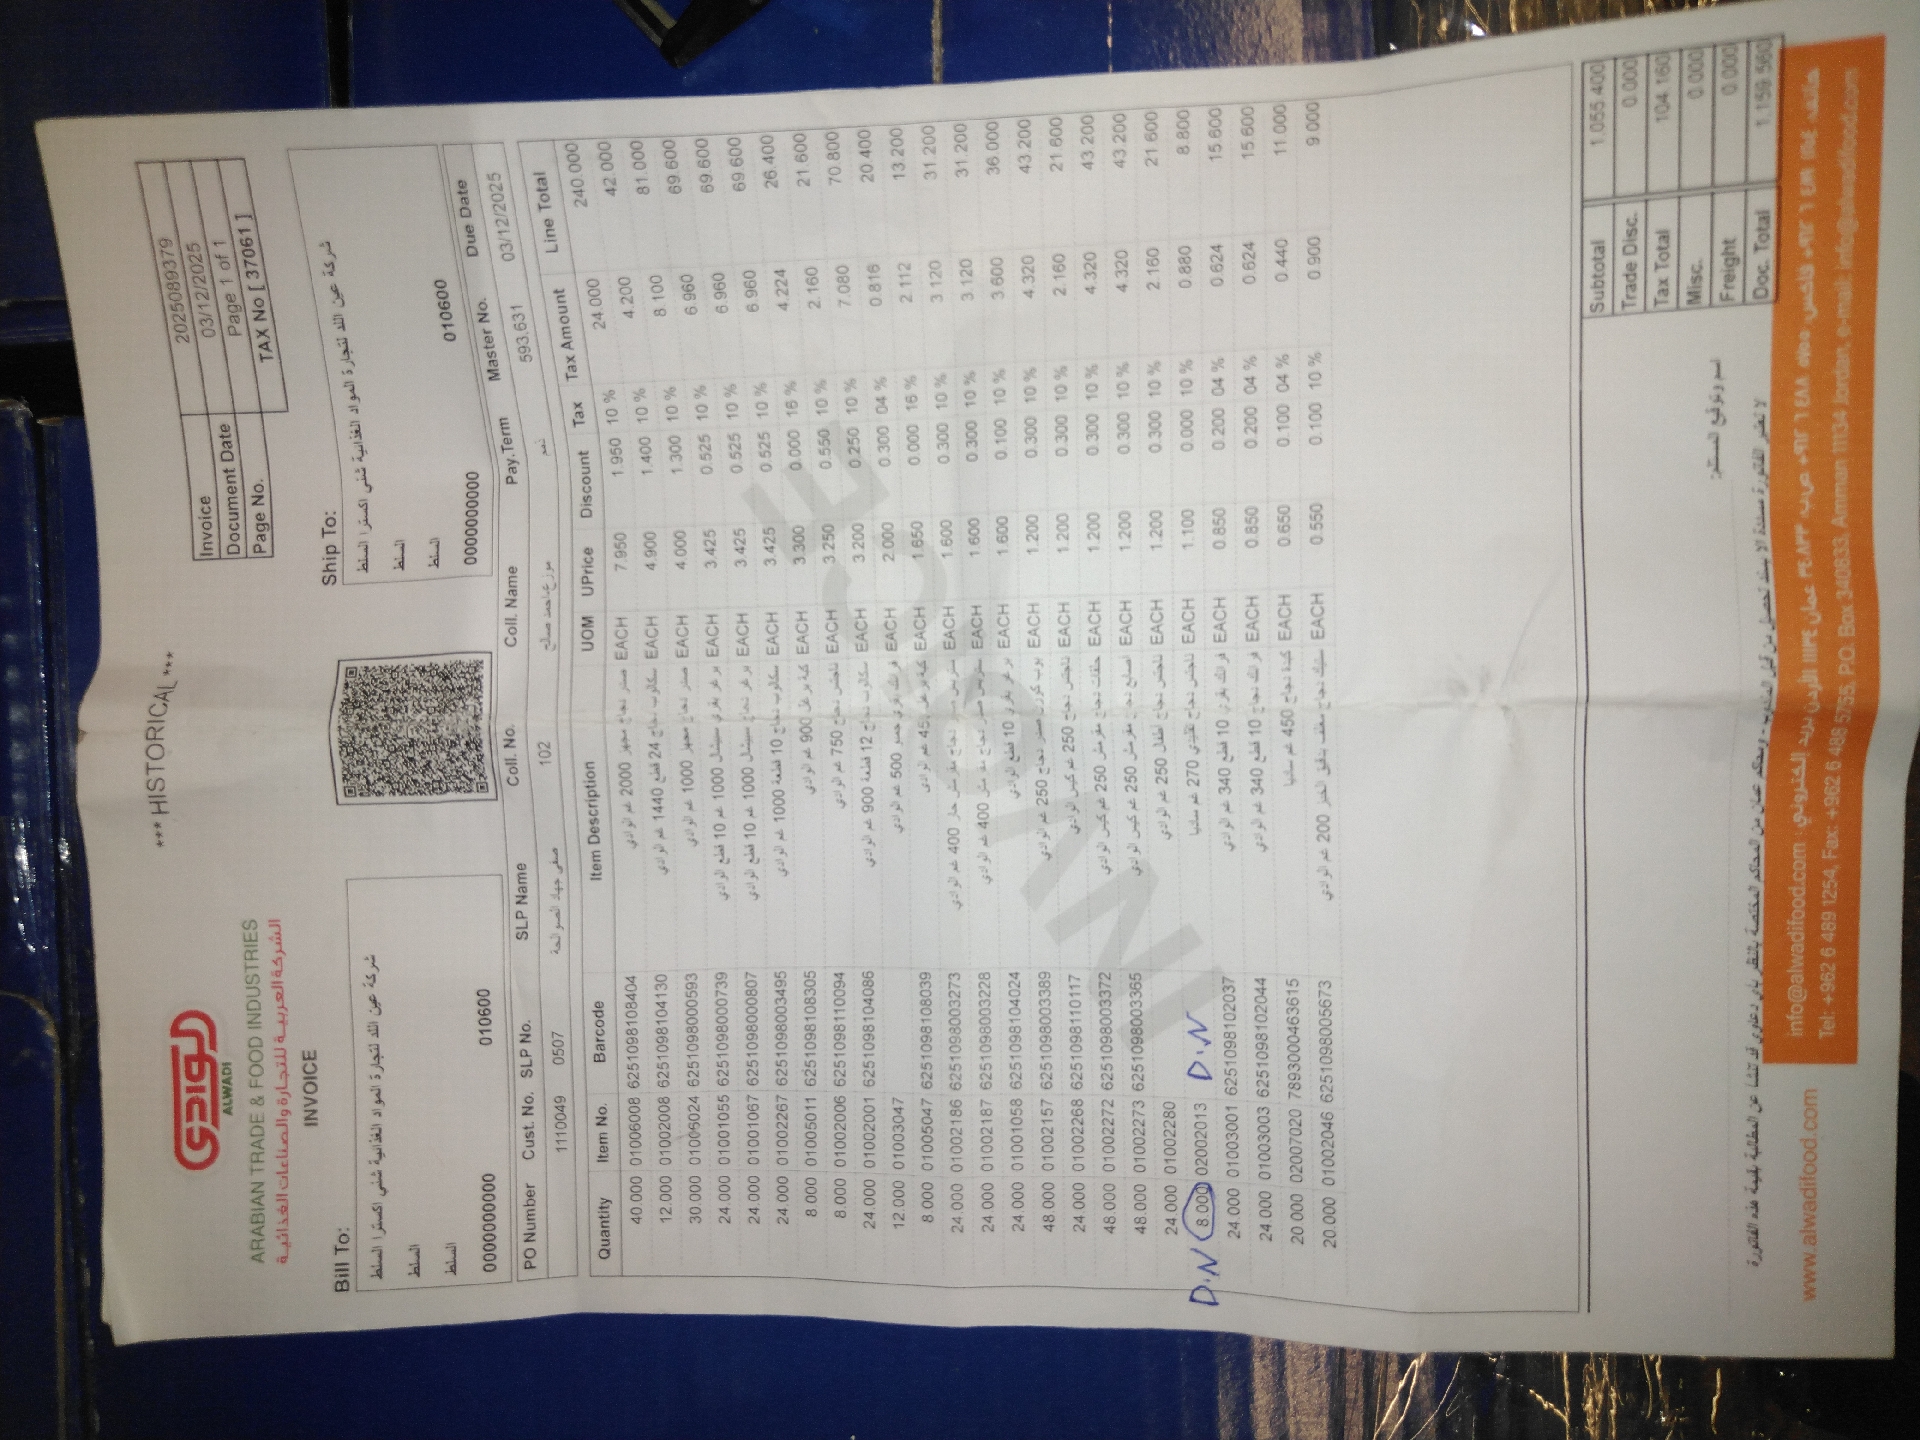 *** HISTORICAL ***
الوادي
ALWADI
ARABIAN TRADE & FOOD INDUSTRIES
الشركة العربية للتجارة والصناعات الغذائية
INVOICE
Invoice 2025089379
Document Date 03/12/2025
Page No. Page 1 of 1
TAX No [ 37061 ]
Bill To:
شركة عين اللد لتجارة المواد الغذائية شني اكسترا السلط
السلط
السلط
0000000000 010600
Ship To:
شركة عين اللد لتجارة المواد الغذائية شني اكسترا السلط
السلط
السلط
0000000000 010600
PO Number Cust. No. SLP No. SLP Name Coll. No. Coll. Name Pay.Term Master No. Due Date
1110049 0507 صفي جهاد الصوالحة 102 موزع-احمد صالح 593.631 03/12/2025
Quantity Item No. Barcode Item Description UOM UPrice Discount Tax Tax Amount Line Total
40.000 01006008 6251098108404 صدر دجاج مجهز 2000 غم الوادي EACH 7.950 1.950 10 % 24.000 240.000
12.000 01002008 6251098104130 سكالوب دجاج 24 قطع 1440 غم الوادي EACH 4.900 1.400 10 % 4.200 42.000
30.000 01006024 6251098000593 صدر دجاج مجهز 1000 غم الوادي EACH 4.000 1.300 10 % 8.100 81.000
24.000 01001055 6251098000739 برغر بقري سبيشال 1000 غم 10 قطع الوادي EACH 3.425 0.525 10 % 6.960 69.600
24.000 01001067 6251098000807 برغر دجاج سبيشال 1000 غم 10 قطع الوادي EACH 3.425 0.525 10 % 6.960 69.600
24.000 01002267 6251098003495 سكالوب دجاج 10 قطعة 1000 غم الوادي EACH 3.425 0.525 10 % 6.960 69.600
8.000 01005011 6251098108305 كبة برغل 900 غم الوادي EACH 3.300 0.000 16 % 4.224 26.400
8.000 01002006 6251098110094 ناجتس دجاج 750 غم الوادي EACH 3.250 0.550 10 % 2.160 21.600
24.000 01002001 6251098104086 سكالوب دجاج 12 قطعة 900 غم الوادي EACH 3.200 0.250 10 % 7.080 70.800
12.000 01003047 فرانك بقري جمبو 500 غم الوادي EACH 2.000 0.300 04 % 0.816 20.400
8.000 01005047 6251098108039 كبة برغل 450 غم الوادي EACH 1.650 0.000 16 % 2.112 13.200
24.000 01002186 6251098003273 ستربس صدر دجاج مقرمش حار 400 غم الوادي EACH 1.600 0.300 10 % 3.120 31.200
24.000 01002187 6251098003228 ستربس صدر دجاج مقرمش 400 غم الوادي EACH 1.600 0.300 10 % 3.120 31.200
24.000 01001058 6251098104024 برغر بقري 10 قطع الوادي EACH 1.600 0.100 10 % 3.600 36.000
48.000 01002157 6251098003389 بوب كورن صدر دجاج 250 غم الوادي EACH 1.200 0.300 10 % 4.320 43.200
24.000 01002268 6251098110117 ناجتس دجاج 250 غم كيس الوادي EACH 1.200 0.300 10 % 2.160 21.600
48.000 01002272 6251098003372 حلقات دجاج مقرمش 250 غم كيس الوادي EACH 1.200 0.300 10 % 4.320 43.200
48.000 01002273 6251098003365 اصابع دجاج مقرمش 250 غم كيس الوادي EACH 1.200 0.300 10 % 4.320 43.200
24.000 01002280 ناجتس دجاج اطفال 250 غم الوادي EACH 1.200 0.300 10 % 2.160 21.600
D.N 8.000 02002013 D.N ناجتس دجاج تقليدي 270 غم ساديا EACH 1.100 0.000 10 % 0.880 8.800
24.000 01003001 6251098102037 فرانك بقري 10 قطع 340 غم الوادي EACH 0.850 0.200 04 % 0.624 15.600
24.000 01003003 6251098102044 فرانك دجاج 10 قطع 340 غم الوادي EACH 0.850 0.200 04 % 0.624 15.600
20.000 02007020 7893000463615 كبدة دجاج 450 غم ساديا EACH 0.650 0.100 04 % 0.440 11.000
20.000 01002046 6251098005673 ستيك دجاج مغلف بدقيق الخبز 200 غم الوادي EACH 0.550 0.100 10 % 0.900 9.000
Subtotal 1.055.400
Trade Disc. 0.000
Tax Total 104.160
Misc. 0.000
Freight 0.000
Doc. Total 1.159.560
اسم وتوقيع المستلم:
www.alwadifood.com
info@alwadifood.com
Tel: +962 6 489 1254, Fax: +962 6 488 5755, P.O. Box 340833, Amman 11134 Jordan, e-mail: info@alwadifood.com